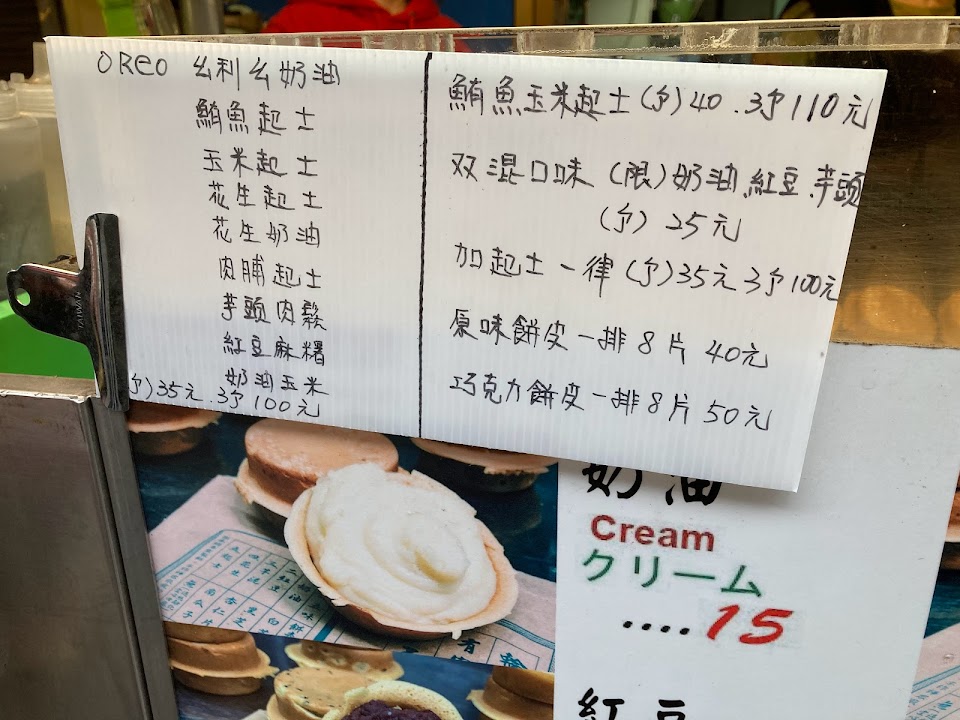 OREO 幺利幺奶油
鮪魚起士
玉米起士
花生起士
花生奶油
肉脯起士
芋頭肉鬆
紅豆麻糬
奶油玉米
(个)35元.3个100元
鮪魚玉米起士(个)40.3个110元
双混口味(限)奶油.紅豆.芋頭
(个)25元
加起士一律(个)35元3个100元
原味餅皮一排8片40元
巧克力餅皮一排8片50元
TAIWAN
奶油
Cream
クリーム
....15
紅豆